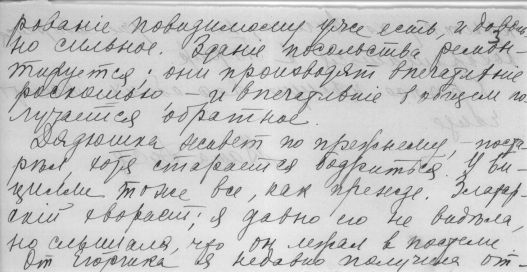 рованіе повидимому уже есть, и доволь
но сильное. Зданіе посольства ремон-
тируется; они производят впечатлѣніе
роскошью – и впечатлѣніе в общем по
лучается обратное.
Дядюшка живет по прежнему, – поста
рѣл, хотя старается бодриться. У
тоже все, как прежде.
хворает; я давно его не видѣла,
но слышала, что он лежал в постели
От Егорушка я недавно получила от-